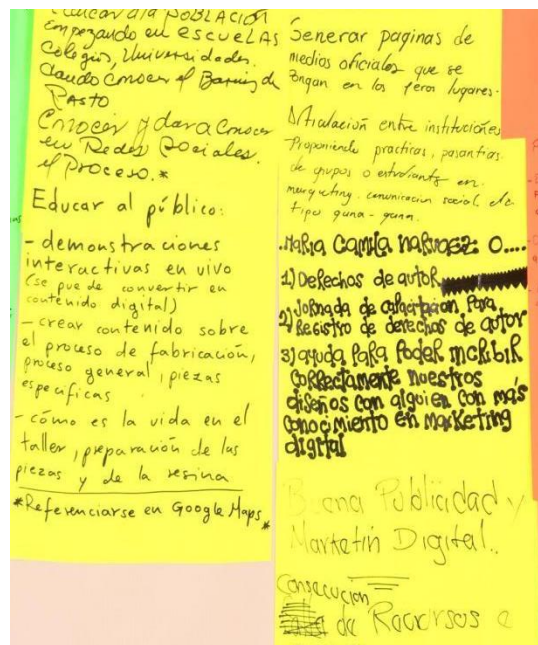 Educar a la POBLACIÓN
Empezando en escuelas
Colegios, Universidades.
dando Conocer el Barniz de
Pasto
Conocer y dar a Conocer
en Redes Sociales.
el Proceso.*
Educar al público:
- demonstraciones
interactivas en vivo
(se puede convertir en
contenido digital)
- crear contenido sobre
el proceso de fabricación,
proceso general, piezas
específicas
- cómo es la vida en el
taller, preparación de las
piezas y de la resina
*Referenciarse en Google Maps*
Generar paginas de
medios oficiales que se
pongan en los 1eros lugares.
Articulación entre instituciones
Proponiendo practicas, pasantias.
de grupos o estudiantes en.
marqueting. comunicacion social, etc
tipo gana - gana.
. Maria Camila Narvaez O....
1) Derechos de autor
2) Jornada de capacitacion Para
Registro de derechos de autor
3) ayuda Para Poder incribir
correctamente nuestros
diseños con alguien con más
conocimiento en marketing
digital
Buena Publicidad y
Marketin Digital.
Consecución
de Recursos e